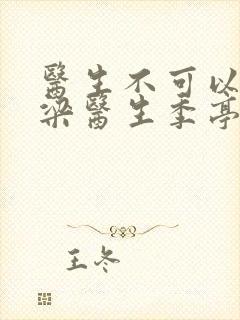 醫生不可以
梁醫生季亭
王冬